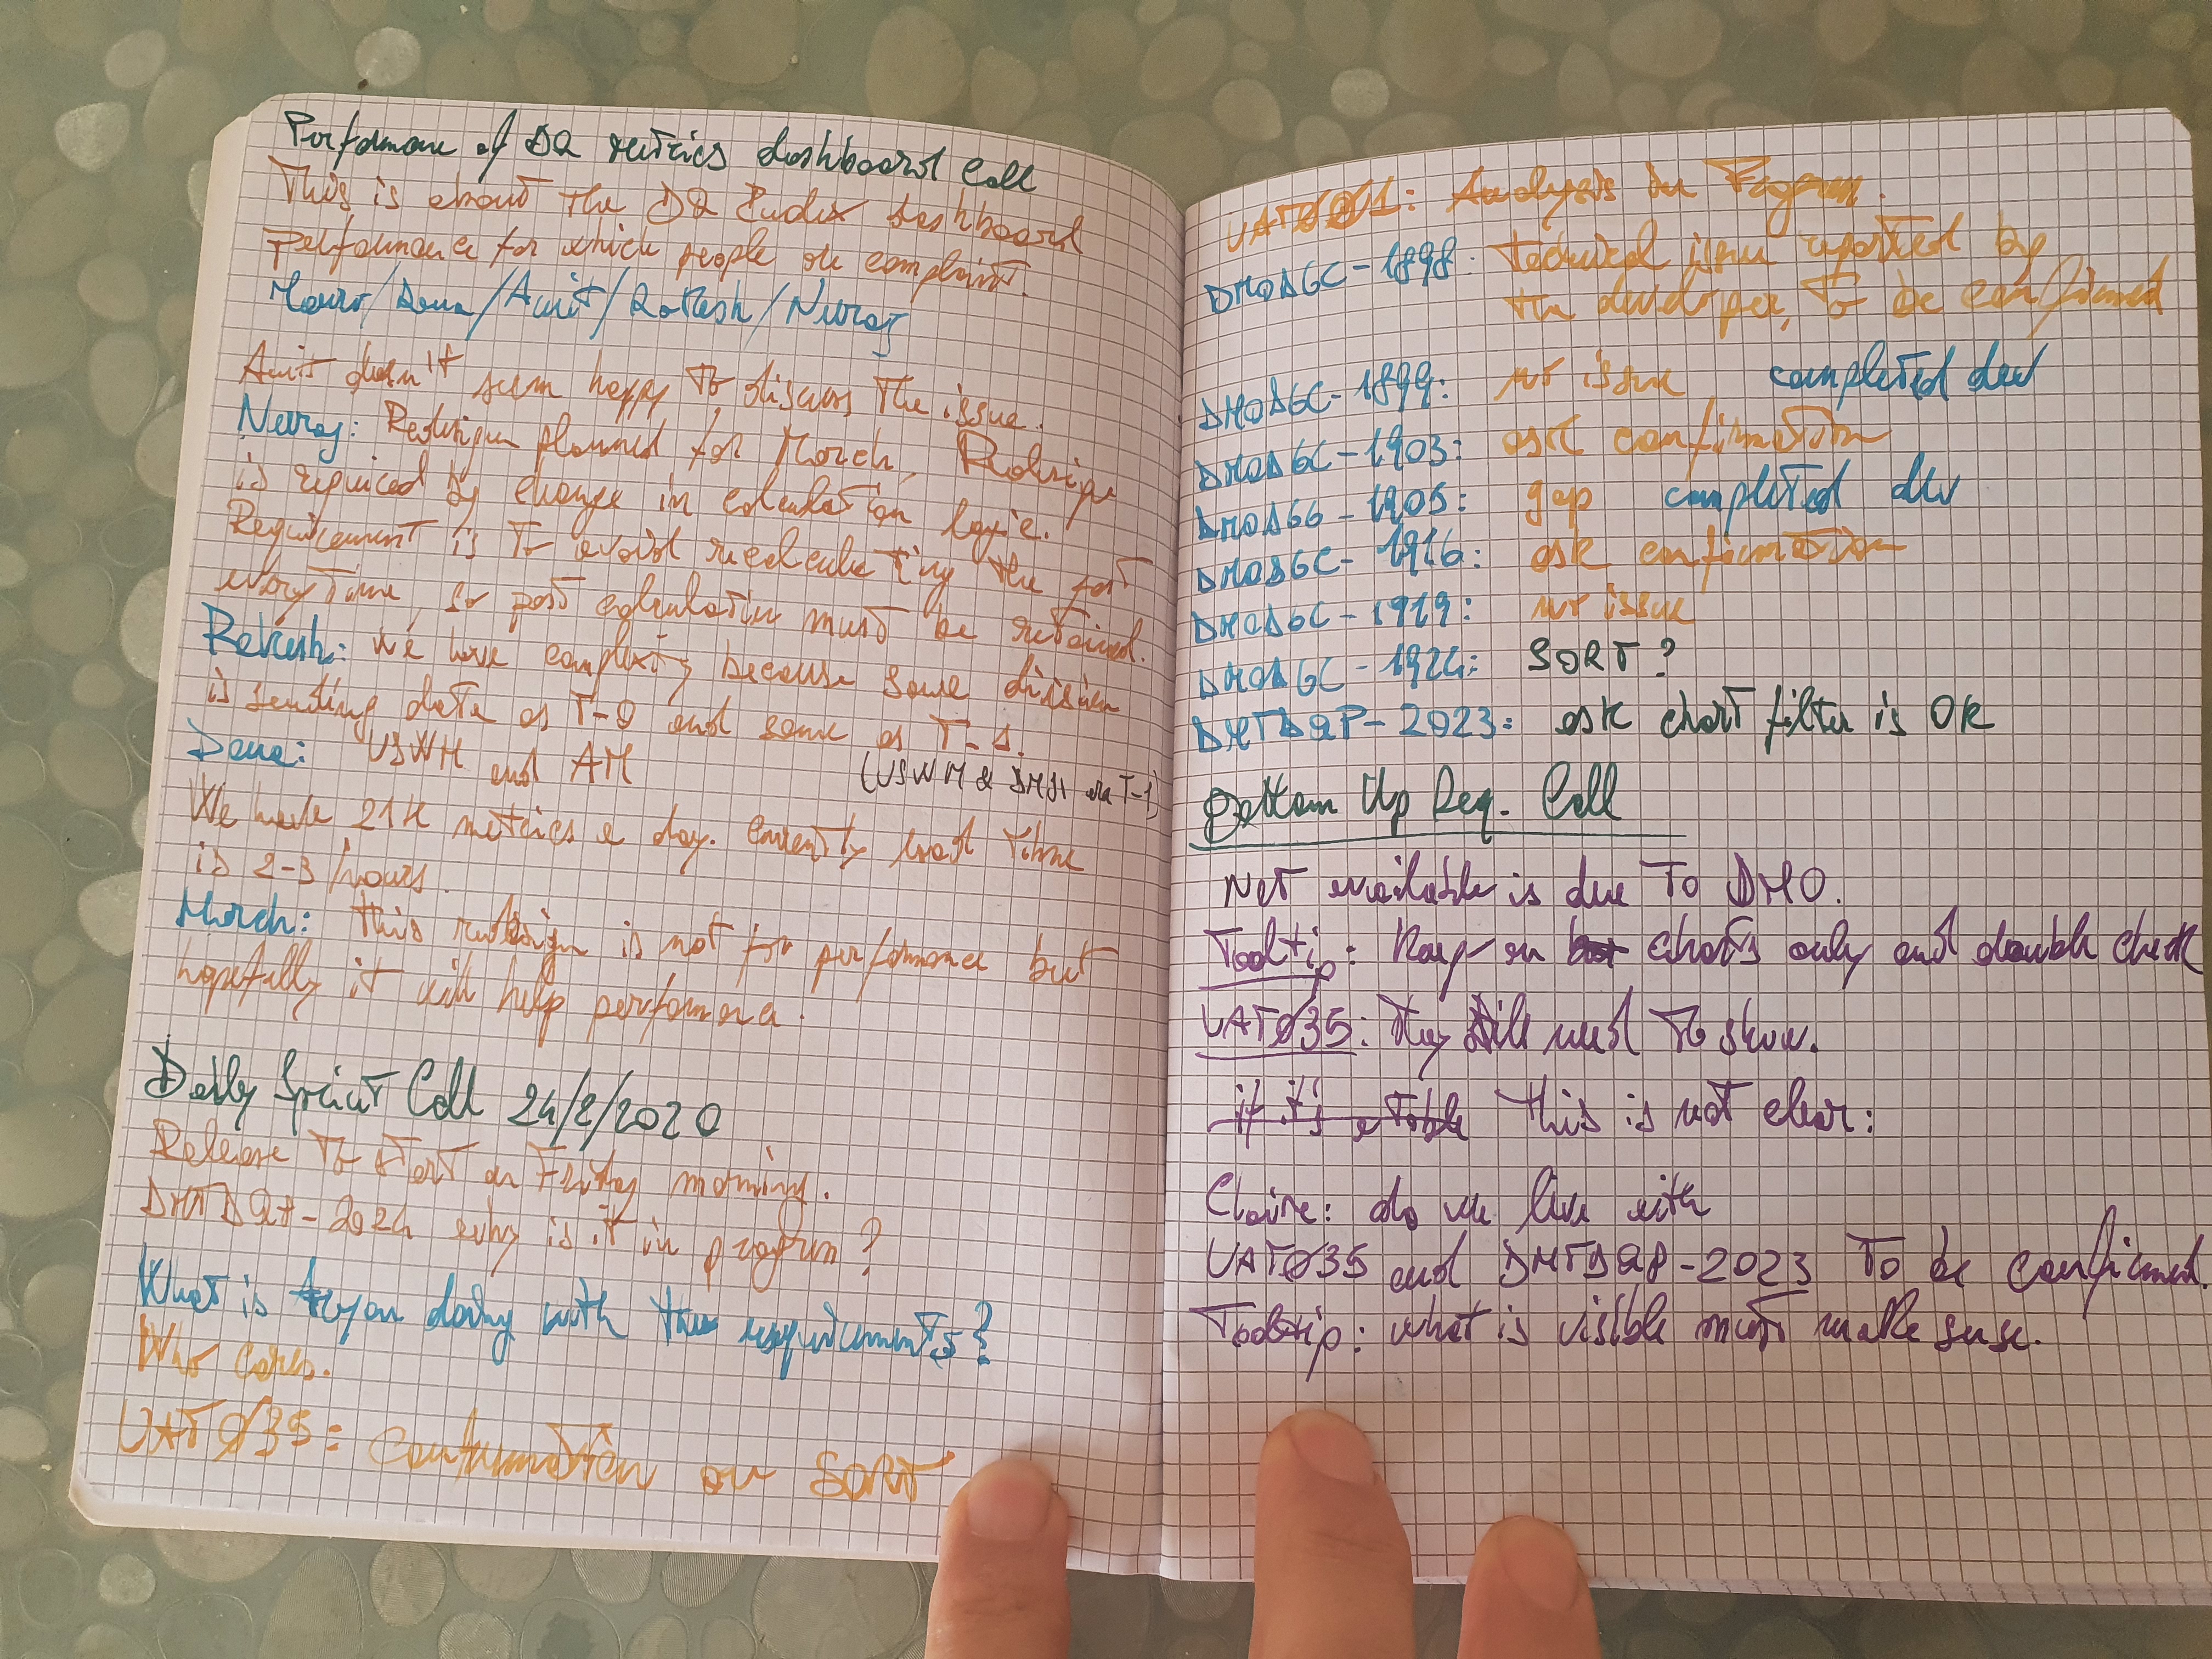 Performance of DQ metrics dashboard Call
This is about the DQ Index dashboard
performance for which people on complaint.
Mauro/Dana/Amit/Rakesh/Neeraj
Amit doesn't seem happy to discuss the issue.
Neeraj: Redesign planned for March, Redesign
is required by change in calculation logic.
Requirement is to avoid recalculating the past
every time, so past calculation must be retained.
Rakesh: we have complexity because some division
is sending data as T-0 and some as T-1.
Dana: USWM and AM (USWM & are T-1)
We have 21K metrics a day. Currently load time
is 2-3 hours.
March: this redesign is not for performance but
hopefully it will help performance.
Daily Sprint Call 24/2/2020
Release to start on Friday morning.
DMTDQP-2024 why is it in progress?
What is doing with the requirements?
Who cares.
UATØ35: Confirmation on SORT
UATØØ1: Analysis in Progress.
DMODGC-1898: technical issue reported by
the developer, to be confirmed
DMODGC-1899: no issue completed dev
DMODGC-1903: ask confirmation
DMODGC-1905: gap completed dev
DMODGC-1916: ask confirmation
DMODGC-1919: no issue
DMODGC-1924: SORT?
DMTDQP-2023: ask chart filter is OK
Bottom Up Req. Call
Not available is due to DMO.
Tooltip: Keep on charts only and double check
UATØ35: They still need to show.
if it's a table This is not clear:
Claire: do we live with
UATØ35 and DMTDQP-2023 To be confirmed.
Tooltip: what is visible must make sense.